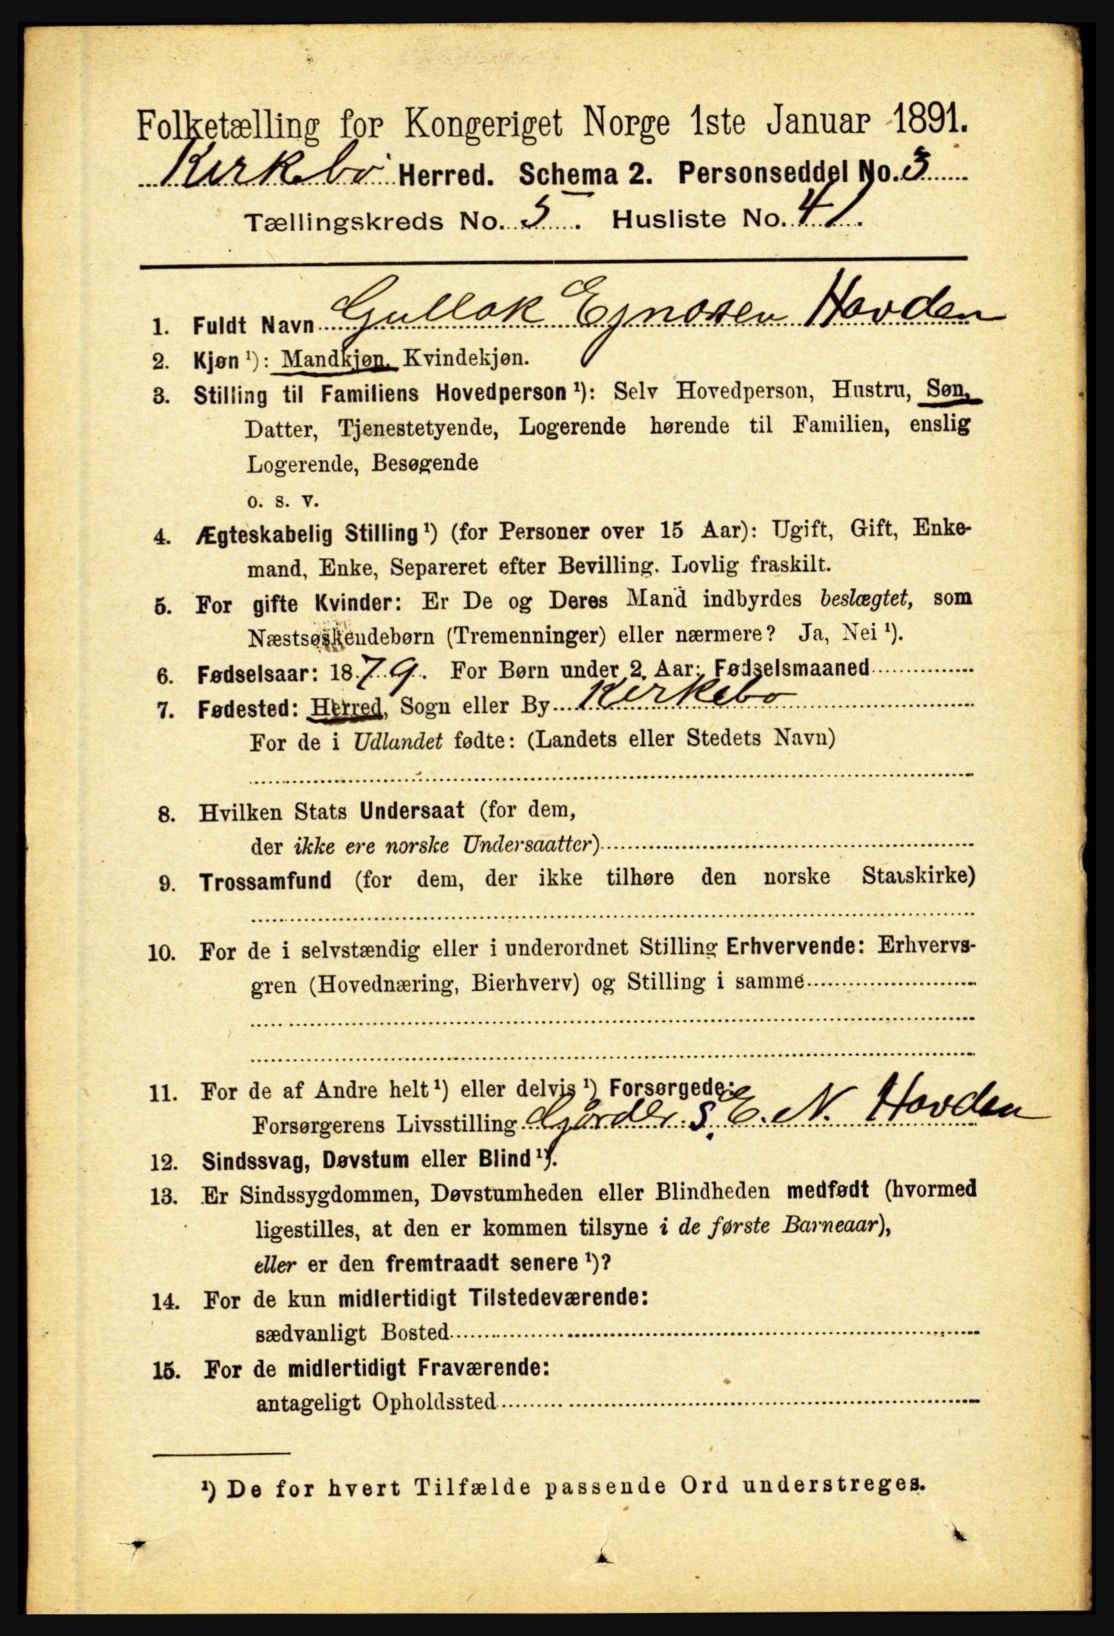 Folketælling for Kongeriget Norge 1ste Januar 1891.
Kirkebø Herred. Schema 2. Personseddel No. 3
Tællingskreds No. 5. Husliste No. 41.
1. Fuldt Navn Gullak Ejnarsen Hovden
2. Kjøn ¹): Mandkjøn, Kvindekjøn.
3. Stilling til Familiens Hovedperson ¹): Selv Hovedperson, Hustru, Søn,
Datter, Tjenestetyende, Logerende hørende til Familien, enslig
Logerende, Besøgende
o. s. v.
4. Ægteskabelig Stilling ¹) (for Personer over 15 Aar): Ugift, Gift, Enke-
mand, Enke, Separeret efter Bevilling. Lovlig fraskilt.
5. For gifte Kvinder: Er De og Deres Mand indbyrdes beslægtet, som
Næstsøskendebørn (Tremenninger) eller nærmere? Ja, Nei ¹).
6. Fødselsaar: 1879. For Børn under 2 Aar: Fødselsmaaned
7. Fødested: Herred, Sogn eller By Kirkebø
For de i Udlandet fødte: (Landets eller Stedets Navn)
8. Hvilken Stats Undersaat (for dem,
der ikke ere norske Undersaatter)
9. Trossamfund (for dem, der ikke tilhøre den norske Statskirke)
10. For de i selvstændig eller i underordnet Stilling Erhvervende: Erhvervs-
gren (Hovednæring, Bierhverv) og Stilling i samme
11. For de af Andre helt ¹) eller delvis ¹) Forsørgede:
Forsørgerens Livsstilling Gårdbr. S. E. N. Hovden
12. Sindssvag, Døvstum eller Blind ¹).
13. Er Sindssygdommen, Døvstumheden eller Blindheden medfødt (hvormed
ligestilles, at den er kommen tilsyne i de første Barneaar),
eller er den fremtraadt senere ¹)?
14. For de kun midlertidigt Tilstedeværende:
sædvanligt Bosted
15. For de midlertidigt Fraværende:
antageligt Opholdssted
¹) De for hvert Tilfælde passende Ord understreges.